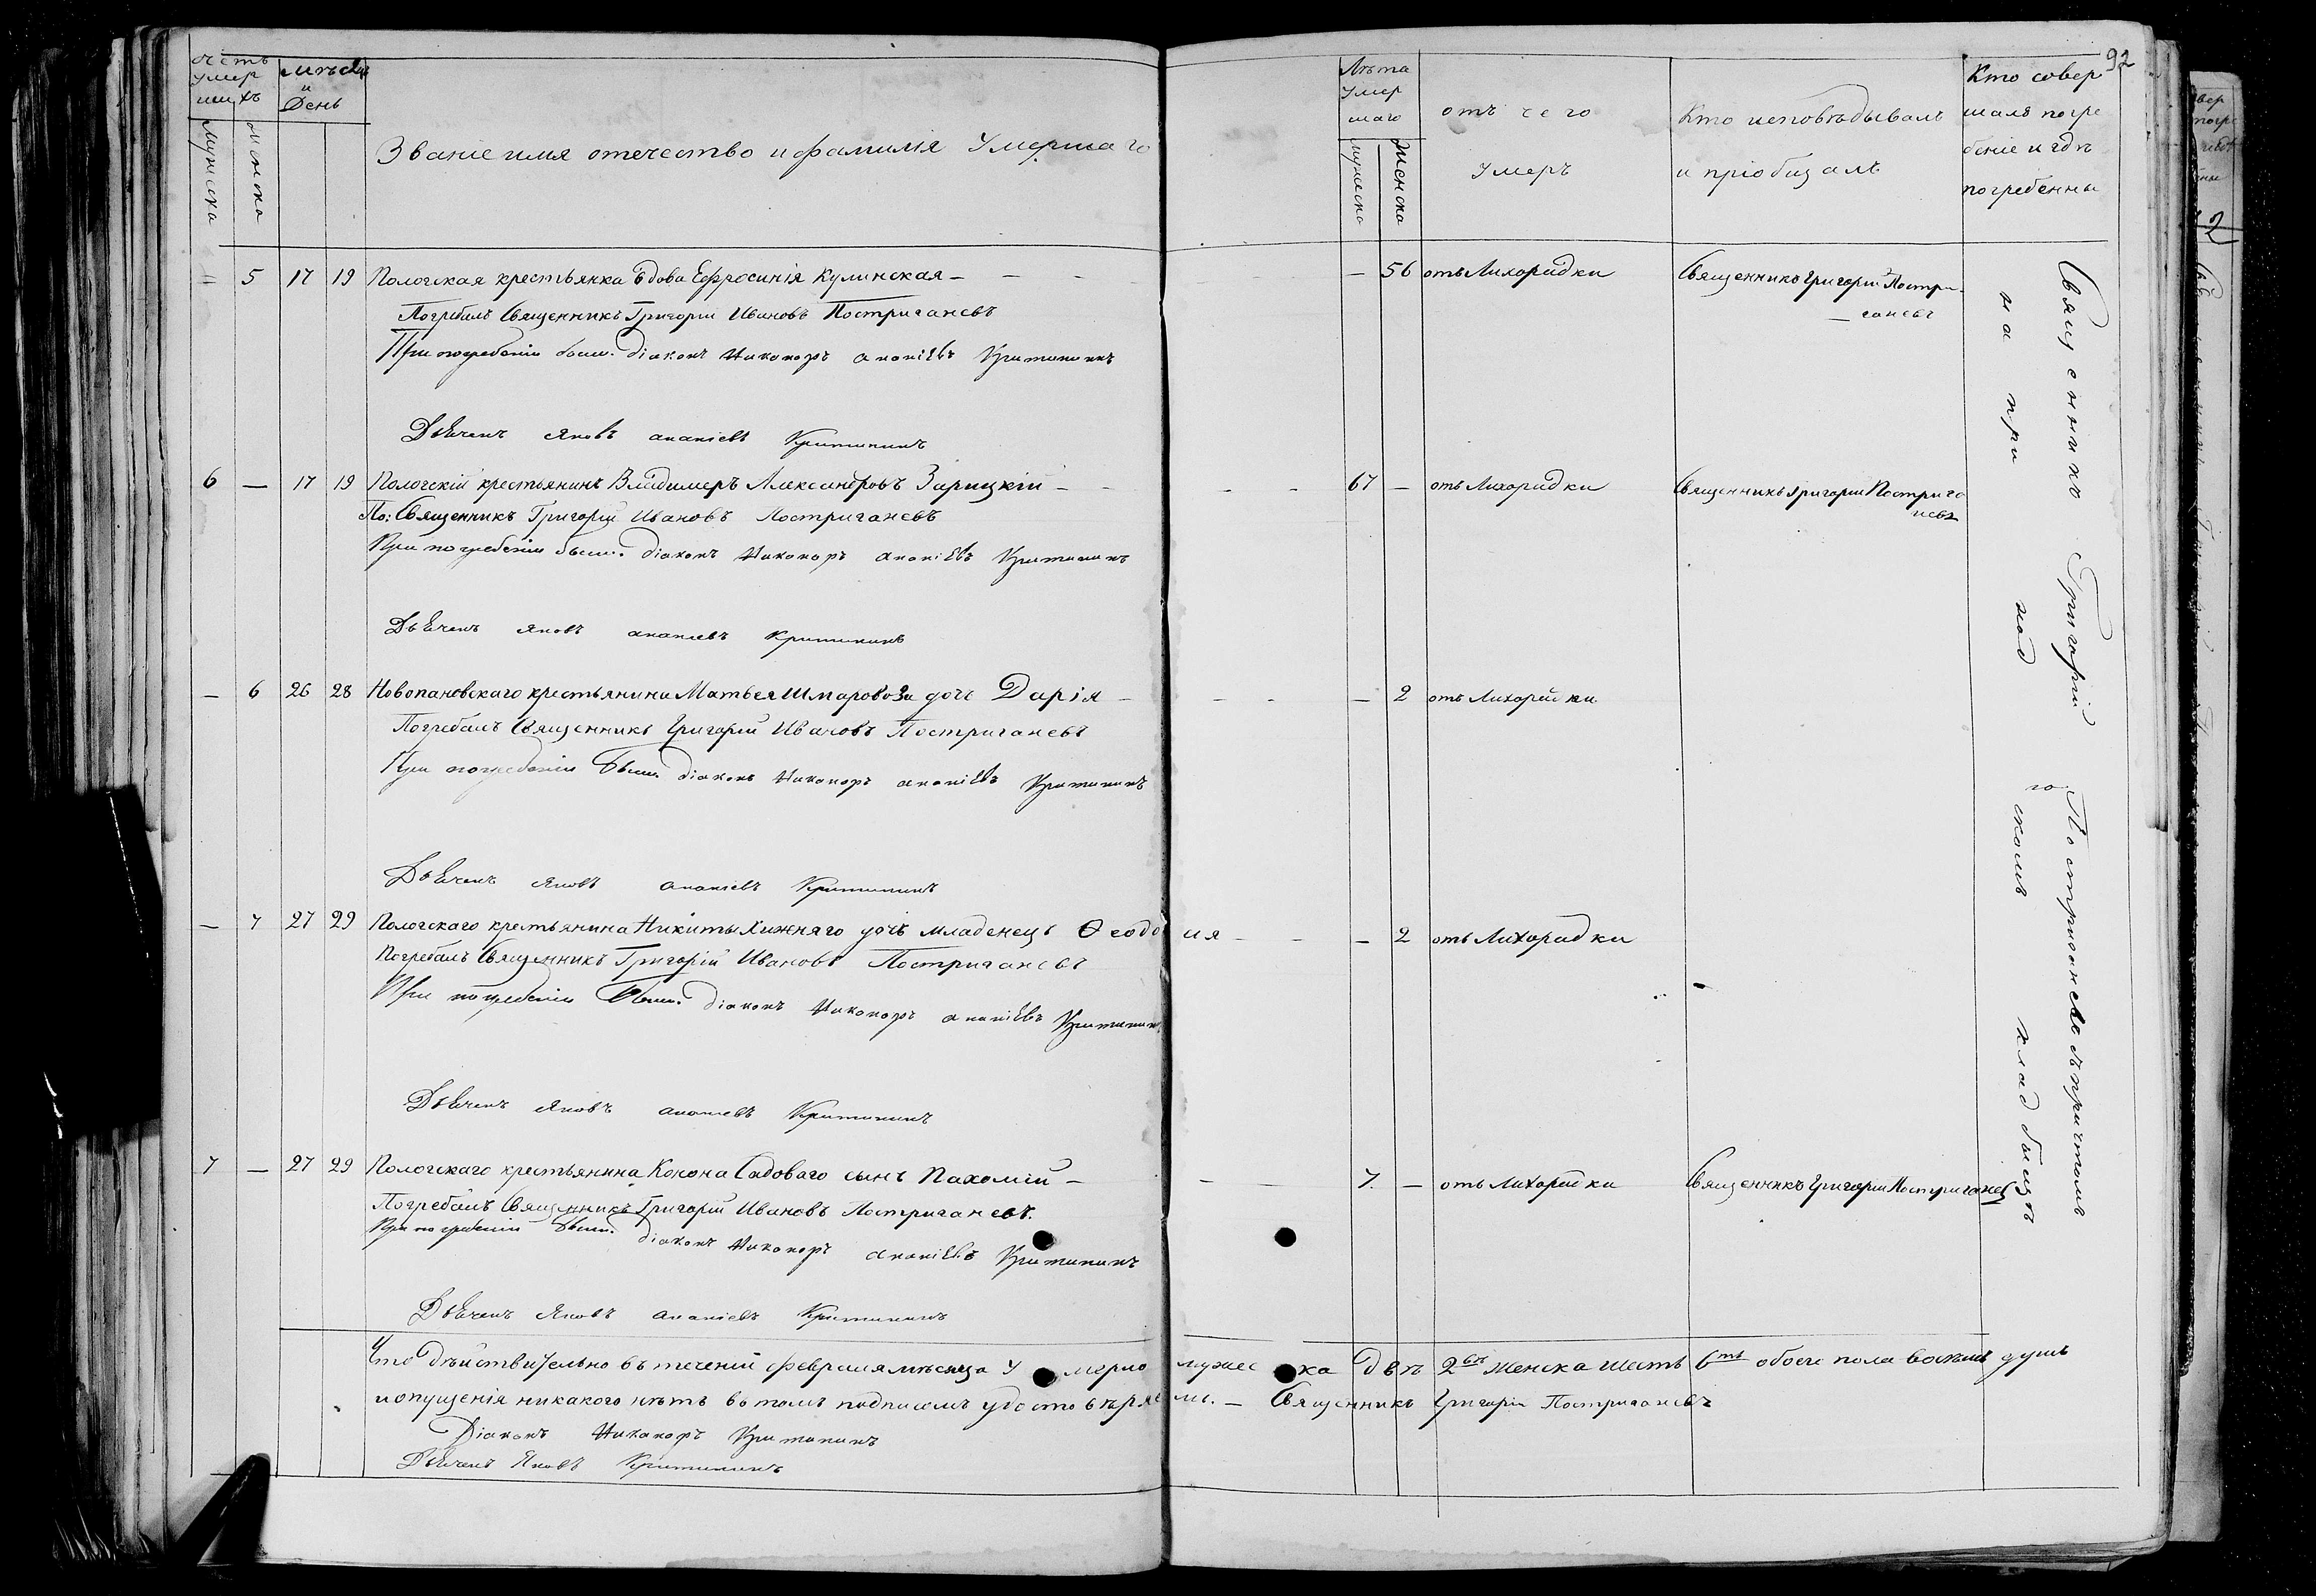 92
счетъ умер шихъ
мѣсяцъ и День
Званіе имя отечество и фамилія Умершаго
Лѣта Умер шаго
отъ чего Умеръ
Кто исповѣдывалъ и пріобщалъ
Кто совер шалъ погре беніе и гдѣ погребенны
мужеска
женска
мужеска
Женска
5 17 19 Пологская крестьянка Вдова Ефросинія Кулинская — — 56 отъ Лихорадки Священникъ Григорій Постри-
ганевъ
Погребалъ Священникъ Григорій Ивановъ Постриганевъ
При погребеніи были. діаконъ Никаноръ ананіевъ Критининъ
Дьячекъ Яковъ ананіевъ Критининъ
6 — 17 19 Пологскій крестьянинъ Владимеръ Александровъ Зарицкій — 67 — отъ Лихорадки Священникъ Григорій Пострига
невъ
По: Священникъ Григорій Ивановъ Постриганевъ
При погребеніи были. діаконъ Никаноръ ананіевъ Критининъ
Дьячекъ Яковъ ананіевъ Критининъ
— 6 26 28 Новопановскаго крестьянина Матвея Шмаровоза дочь Дарія — — 2 отъ Лихорадки
Погребалъ Священникъ Григорій Ивановъ Постриганевъ
При погребеніи были діаконъ Никаноръ ананіевъ Критининъ
Дьячекъ Яковъ ананіевъ Критининъ
— 7 27 29 Пологскаго крестьянина Никиты Хижняго дочь младенецъ Ѳеодосия — — 2 отъ Лихорадки
Погребалъ Священникъ Григорій Ивановъ Постриганевъ
При погребеніи были. діаконъ Никаноръ ананіевъ Критининъ
Дьячекъ Яковъ ананіевъ Критининъ
7 — 27 29 Пологскаго крестьянина Конона Садоваго сынъ Пахомій — 7. — отъ Лихорадки Священникъ Григорій Постриганевъ
Погребалъ Священникъ Григорій Ивановъ Постриганевъ.
При погребеніи были. діаконъ Никаноръ ананіевъ Критининъ
Дьячекъ Яковъ ананіевъ Критининъ
Священникъ Григорій Постриганевъ съ причтомъ
на приходскомъ кладбыщѣ
Что Дѣйствительно въ теченій февраля мѣсяца Умерло мужеска двѣ 2 женска шесть 6 обоего пола восемь душъ
и опущенія никакого нѣтъ въ томъ подписомъ удостовѣряемъ. — Священникъ Григорій Постриганевъ
Діаконъ Никаноръ Критининъ
Дьячекъ Яковъ Критининъ